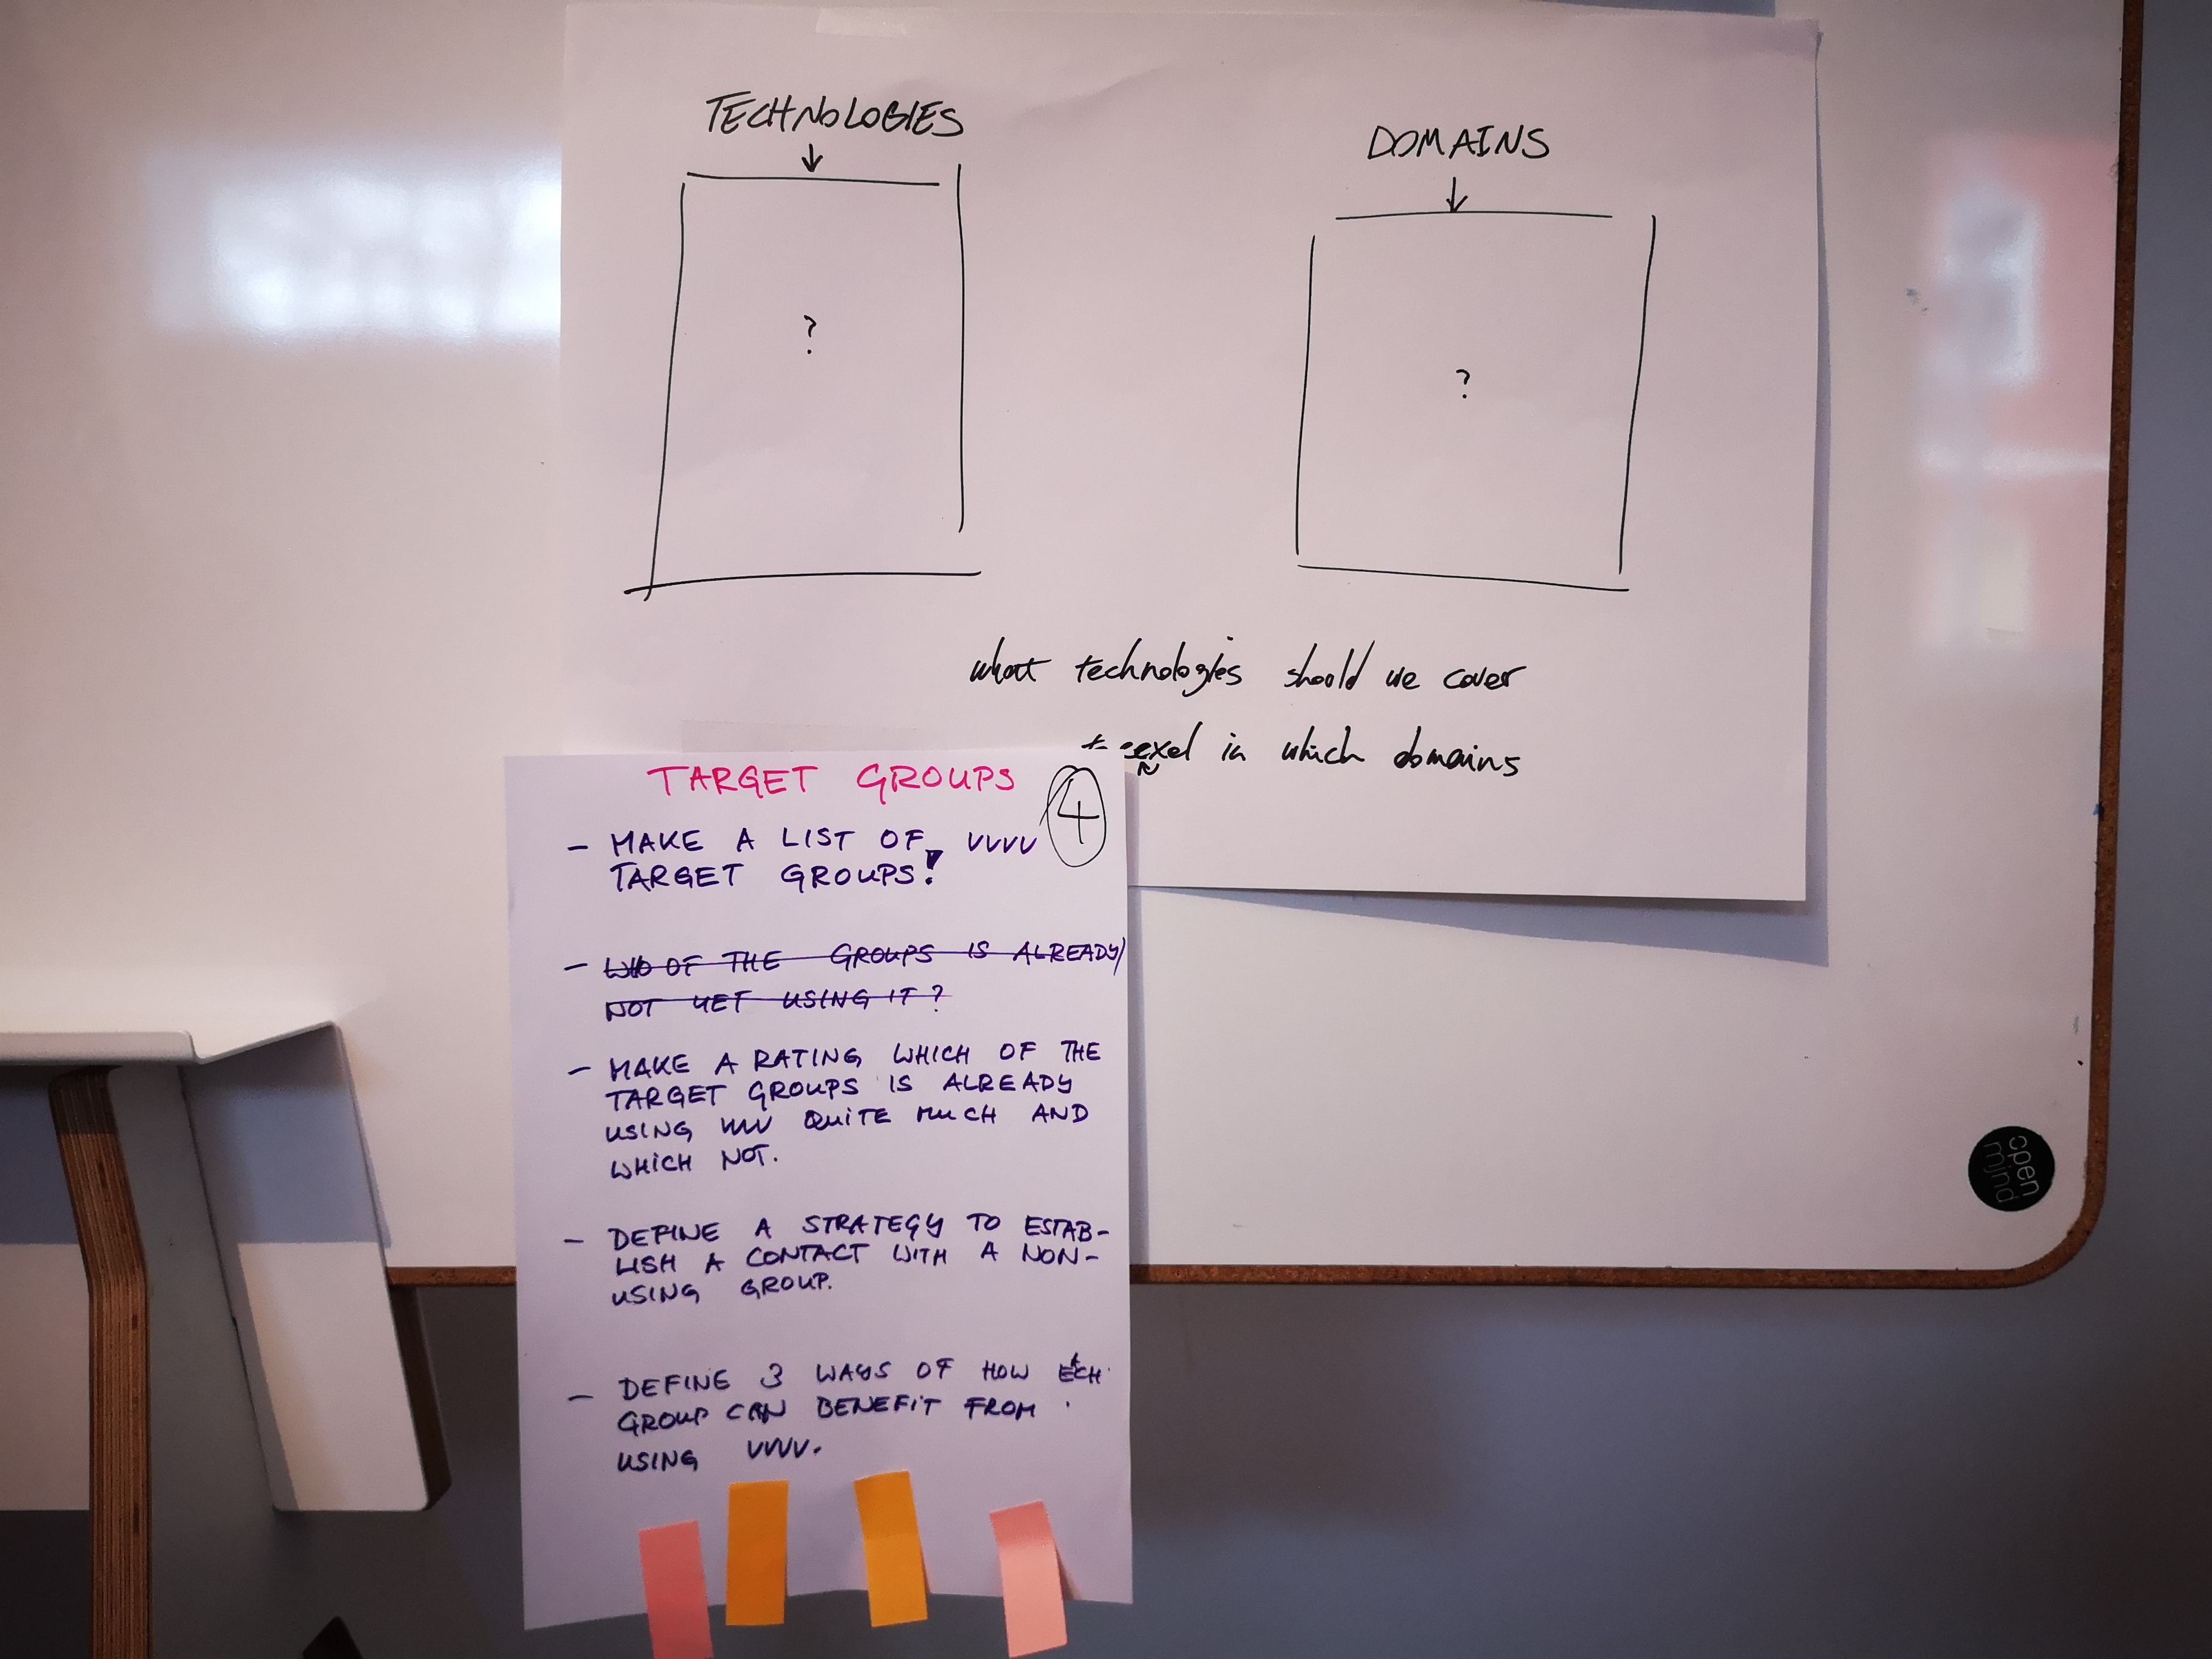 TECHNOLOGIES
↓
?
DOMAINS
↓
?
what technologies should we cover
exel in which domains
TARGET GROUPS
4
- MAKE A LIST OF VVVV
TARGET GROUPS!
- WHO OF THE GROUPS IS ALREADY/
NOT YET USING IT?
- MAKE A RATING WHICH OF THE
TARGET GROUPS IS ALREADY
USING VVVV QUITE MUCH AND
WHICH NOT.
- DEFINE A STRATEGY TO ESTAB-
LISH A CONTACT WITH A NON-
USING GROUP.
- DEFINE 3 WAYS OF HOW EACH
GROUP CAN BENEFIT FROM
USING VVVV.
open
mijnd